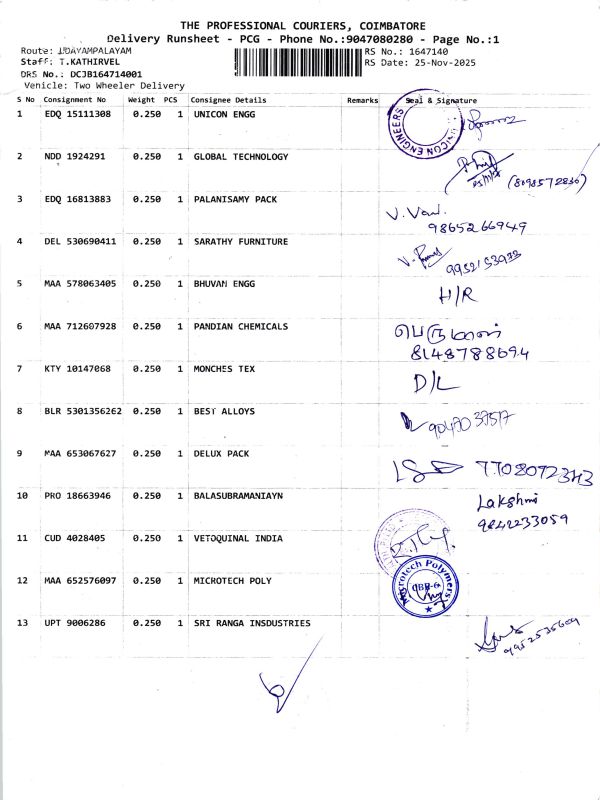 THE PROFESSIONAL COURIERS, COIMBATORE
Delivery Runsheet - PCG - Phone No.:9047080280 - Page No.:1
Route: UDAYAMPALAYAM RS No.: 1647140
Staff: T.KATHIRVEL RS Date: 25-Nov-2025
DRS No.: DCJB164714001
Vehicle: Two Wheeler Delivery
S No Consignment No Weight PCS Consignee Details Remarks Seal & Signature
1 EDQ 15111308 0.250 1 UNICON ENGG UNICON ENGINEERS
2 NDD 1924291 0.250 1 GLOBAL TECHNOLOGY
(8098572836)
3 EDQ 16813883 0.250 1 PALANISAMY PACK
9865266949
4 DEL 530690411 0.250 1 SARATHY FURNITURE
5 MAA 578063405 0.250 1 BHUVAN ENGG H/R
6 MAA 712607928 0.250 1 PANDIAN CHEMICALS பெருமாள்
8148788694
7 KTY 10147068 0.250 1 MONCHES TEX D/L
8 BLR 5301356262 0.250 1 BEST ALLOYS
9 MAA 653067627 0.250 1 DELUX PACK 7708092343
10 PRO 18663946 0.250 1 BALASUBRAMANIAYN Lakshmi
9842233059
11 CUD 4028405 0.250 1 VETOQUINAL INDIA
12 MAA 652576097 0.250 1 MICROTECH POLY Microtech Polymers CBE-6
13 UPT 9006286 0.250 1 SRI RANGA INSDUSTRIES